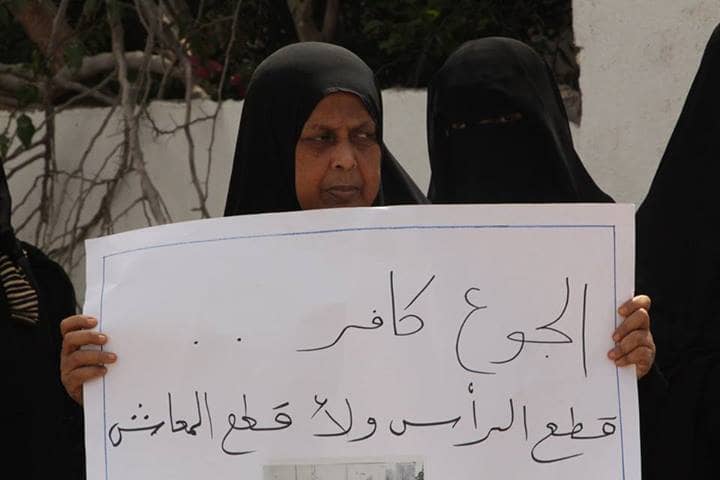 الجوع كافر ..
قطع الرأس ولأ قطع المعاش